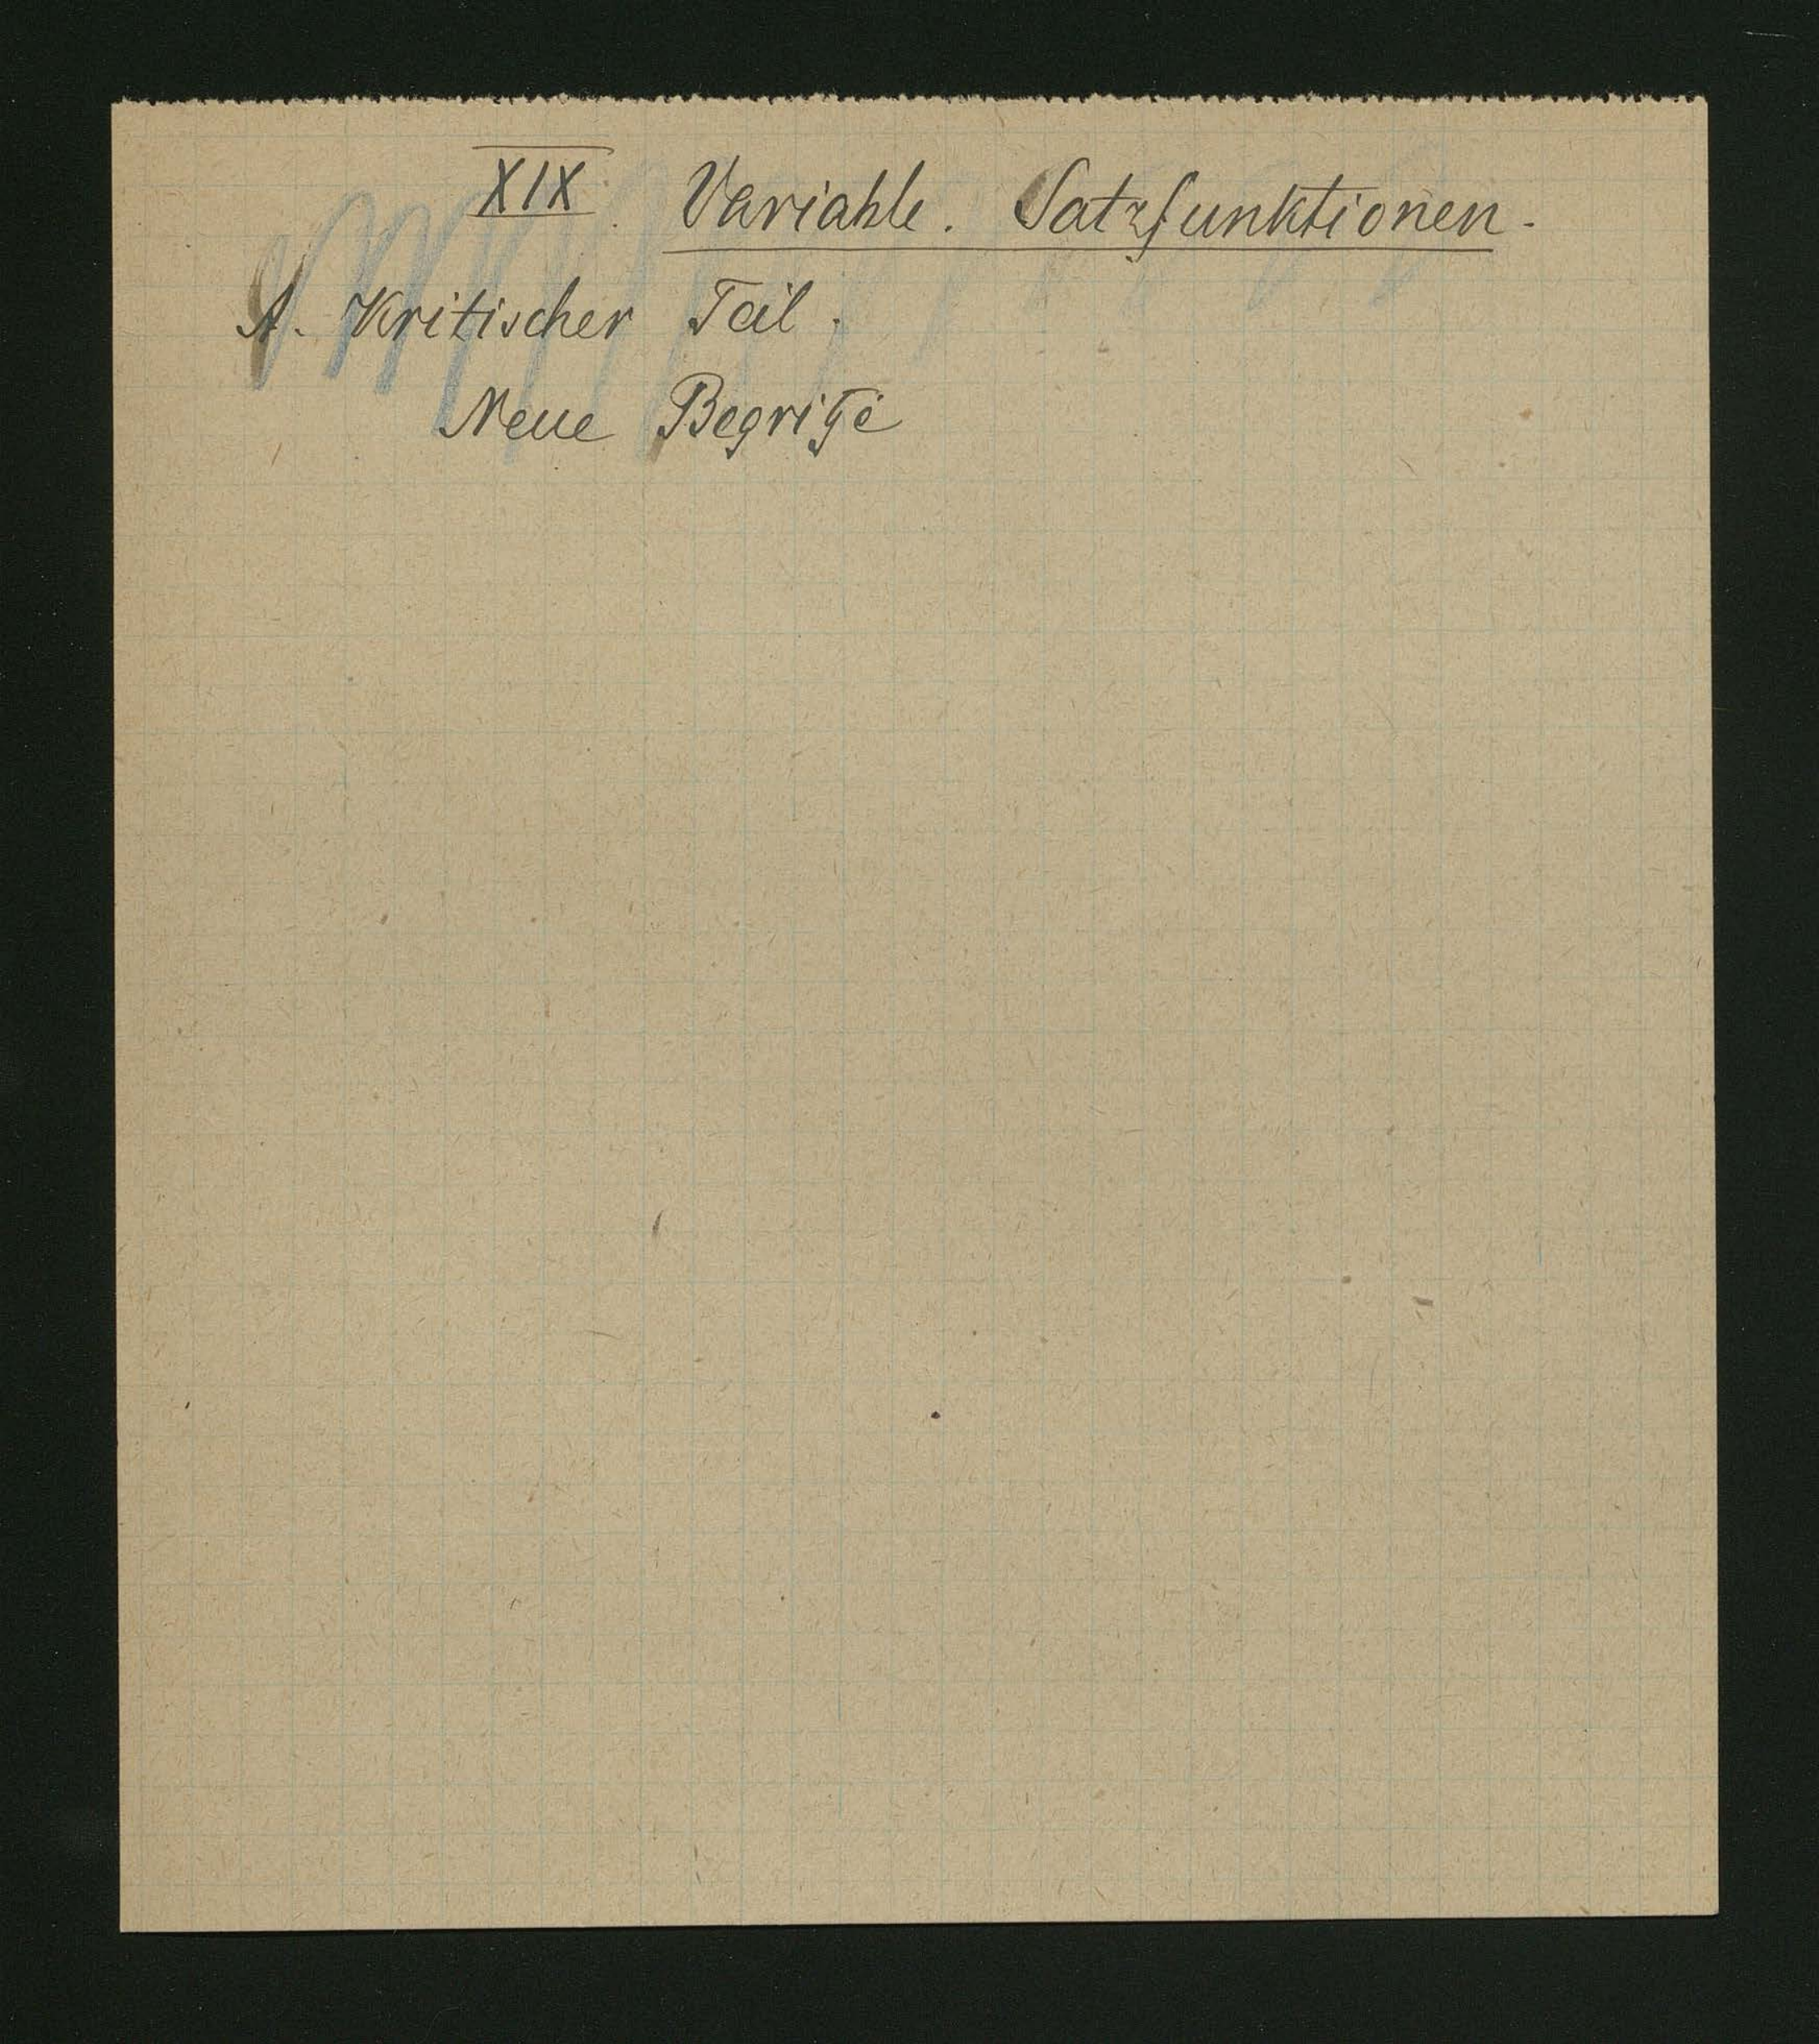 XIX. Variable. Satzfunktionen.
A. Kritischer Teil.
Neue Begriffe